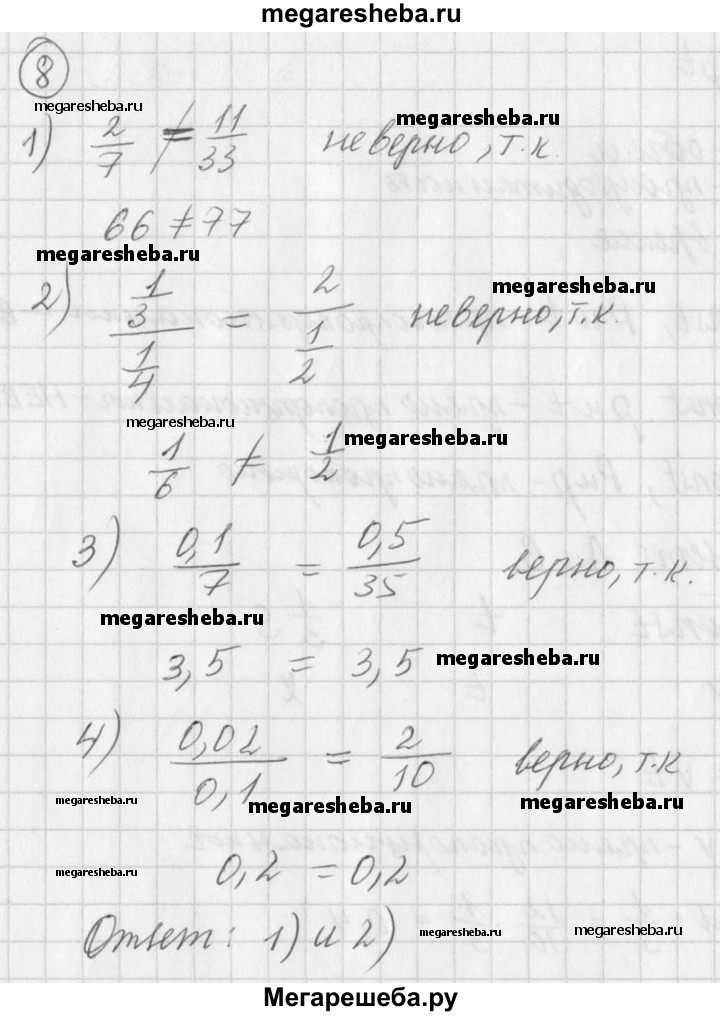 megaresheba.ru
8
megaresheba.ru
megaresheba.ru
1) 2/7 ≠ 11/33 неверно, т.к.
66 ≠ 77
megaresheba.ru
megaresheba.ru
2) 1/3 / 1/4 = 2 / 1/2 неверно, т.к.
megaresheba.ru
megaresheba.ru
1/6 ≠ 1/2
3) 0,1/7 = 0,5/35 верно, т.к.
megaresheba.ru
3,5 = 3,5
megaresheba.ru
4) 0,02/0,1 = 2/10 верно, т.к
megaresheba.ru
megaresheba.ru
megaresheba.ru
0,2 = 0,2
megaresheba.ru
Ответ: 1) и 2)
megaresheba.ru
megaresheba.ru
Мегарешеба.ру